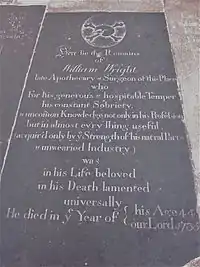 Here lie the Remains
of
William Wright
late Apothecary & Surgeon of this Place
who
For his generous & hospitable Temper
his constant Sobriety,
& uncommon Knowledge not only in his Profession
but in almost evry thing useful,
(acquir'd only by yͤ Strength of his natural Parts
& unwearied Industry)
was
in his Life beloved
in his Death lamented
universally
He died in yͤ Year of { his Age 44
our Lord